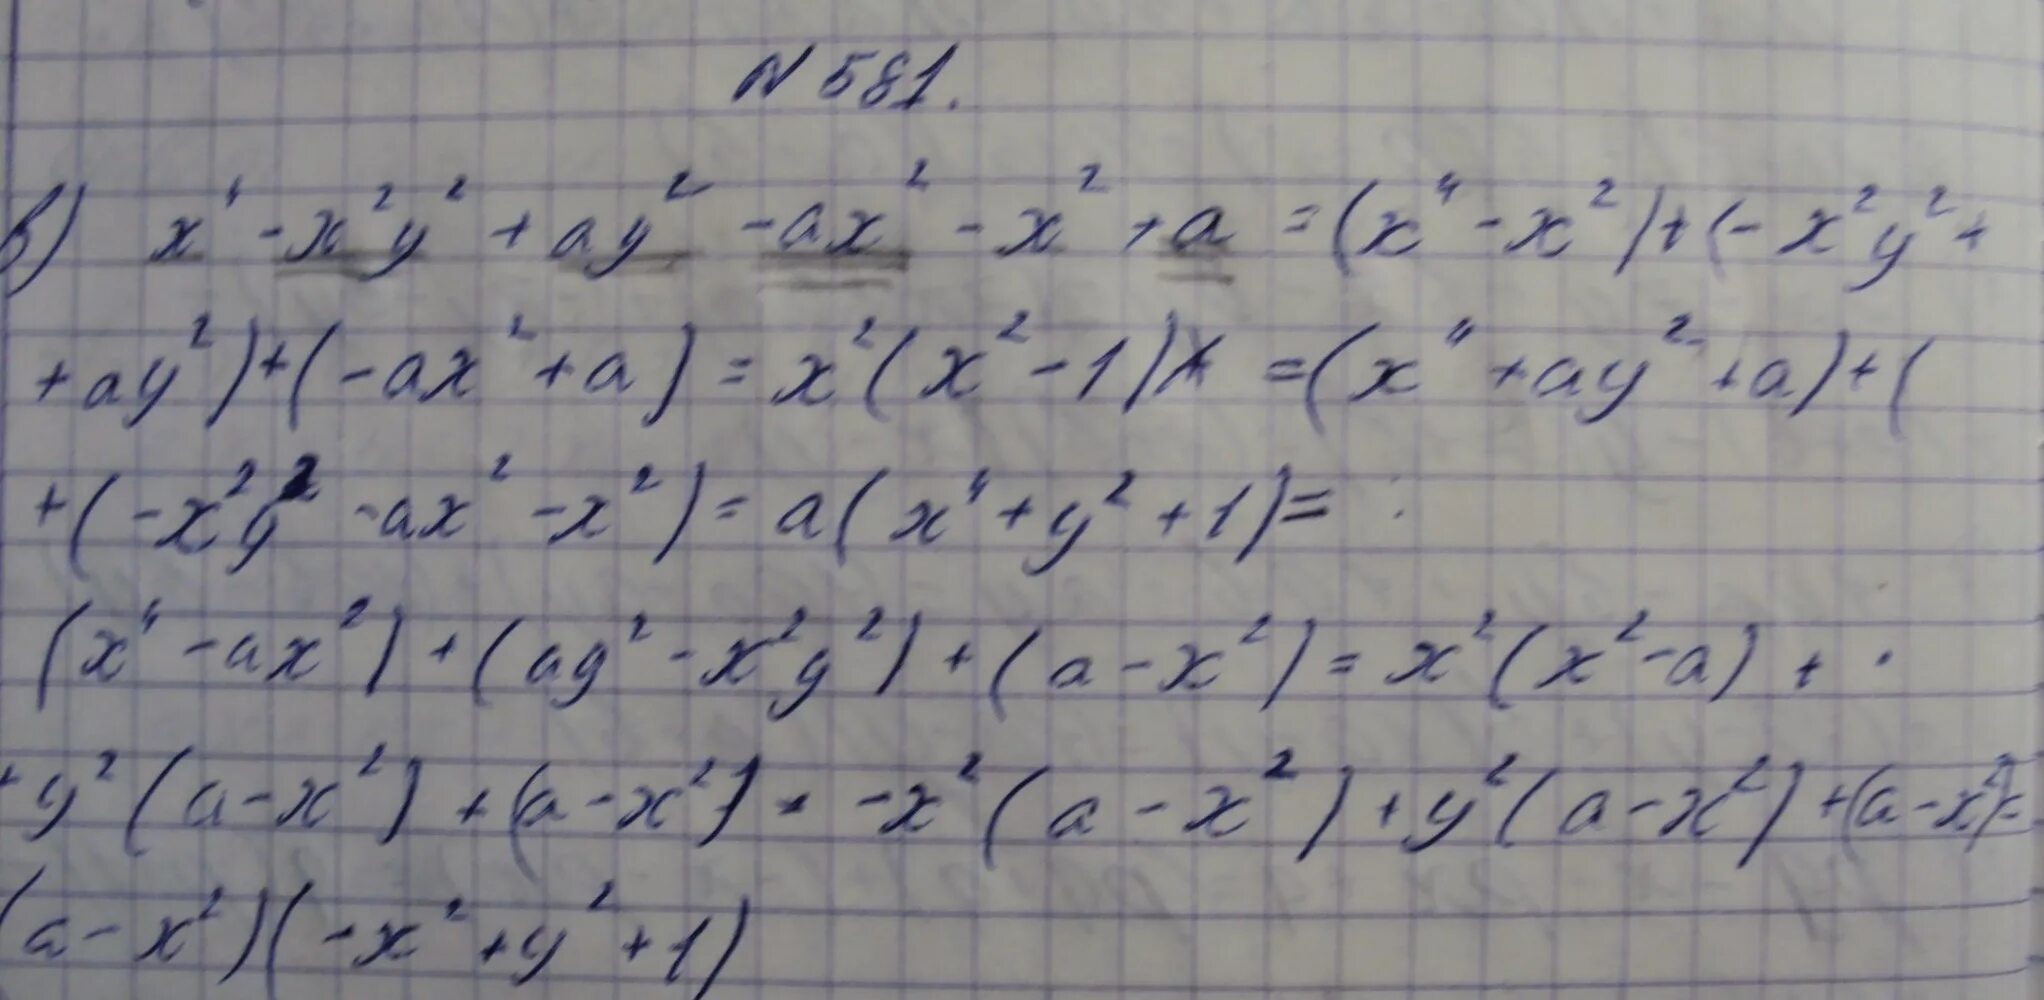 N 581.
в) x⁴ - x²y² + ay² - ax² - x² + a = (x⁴ - x²) + (- x²y² +
+ ay²) + (- ax² + a) = x²(x² - 1) = (x⁴ + ay² + a) + (
+ (- x²y² - ax² - x²) = a(x⁴ + y² + 1) =
(x⁴ - ax²) + (ay² - x²y²) + (a - x²) = x²(x² - a) +
+ y²(a - x²) + (a - x²) = - x²(a - x²) + y²(a - x²) + (a - x²) =
(a - x²)(- x² + y² + 1)